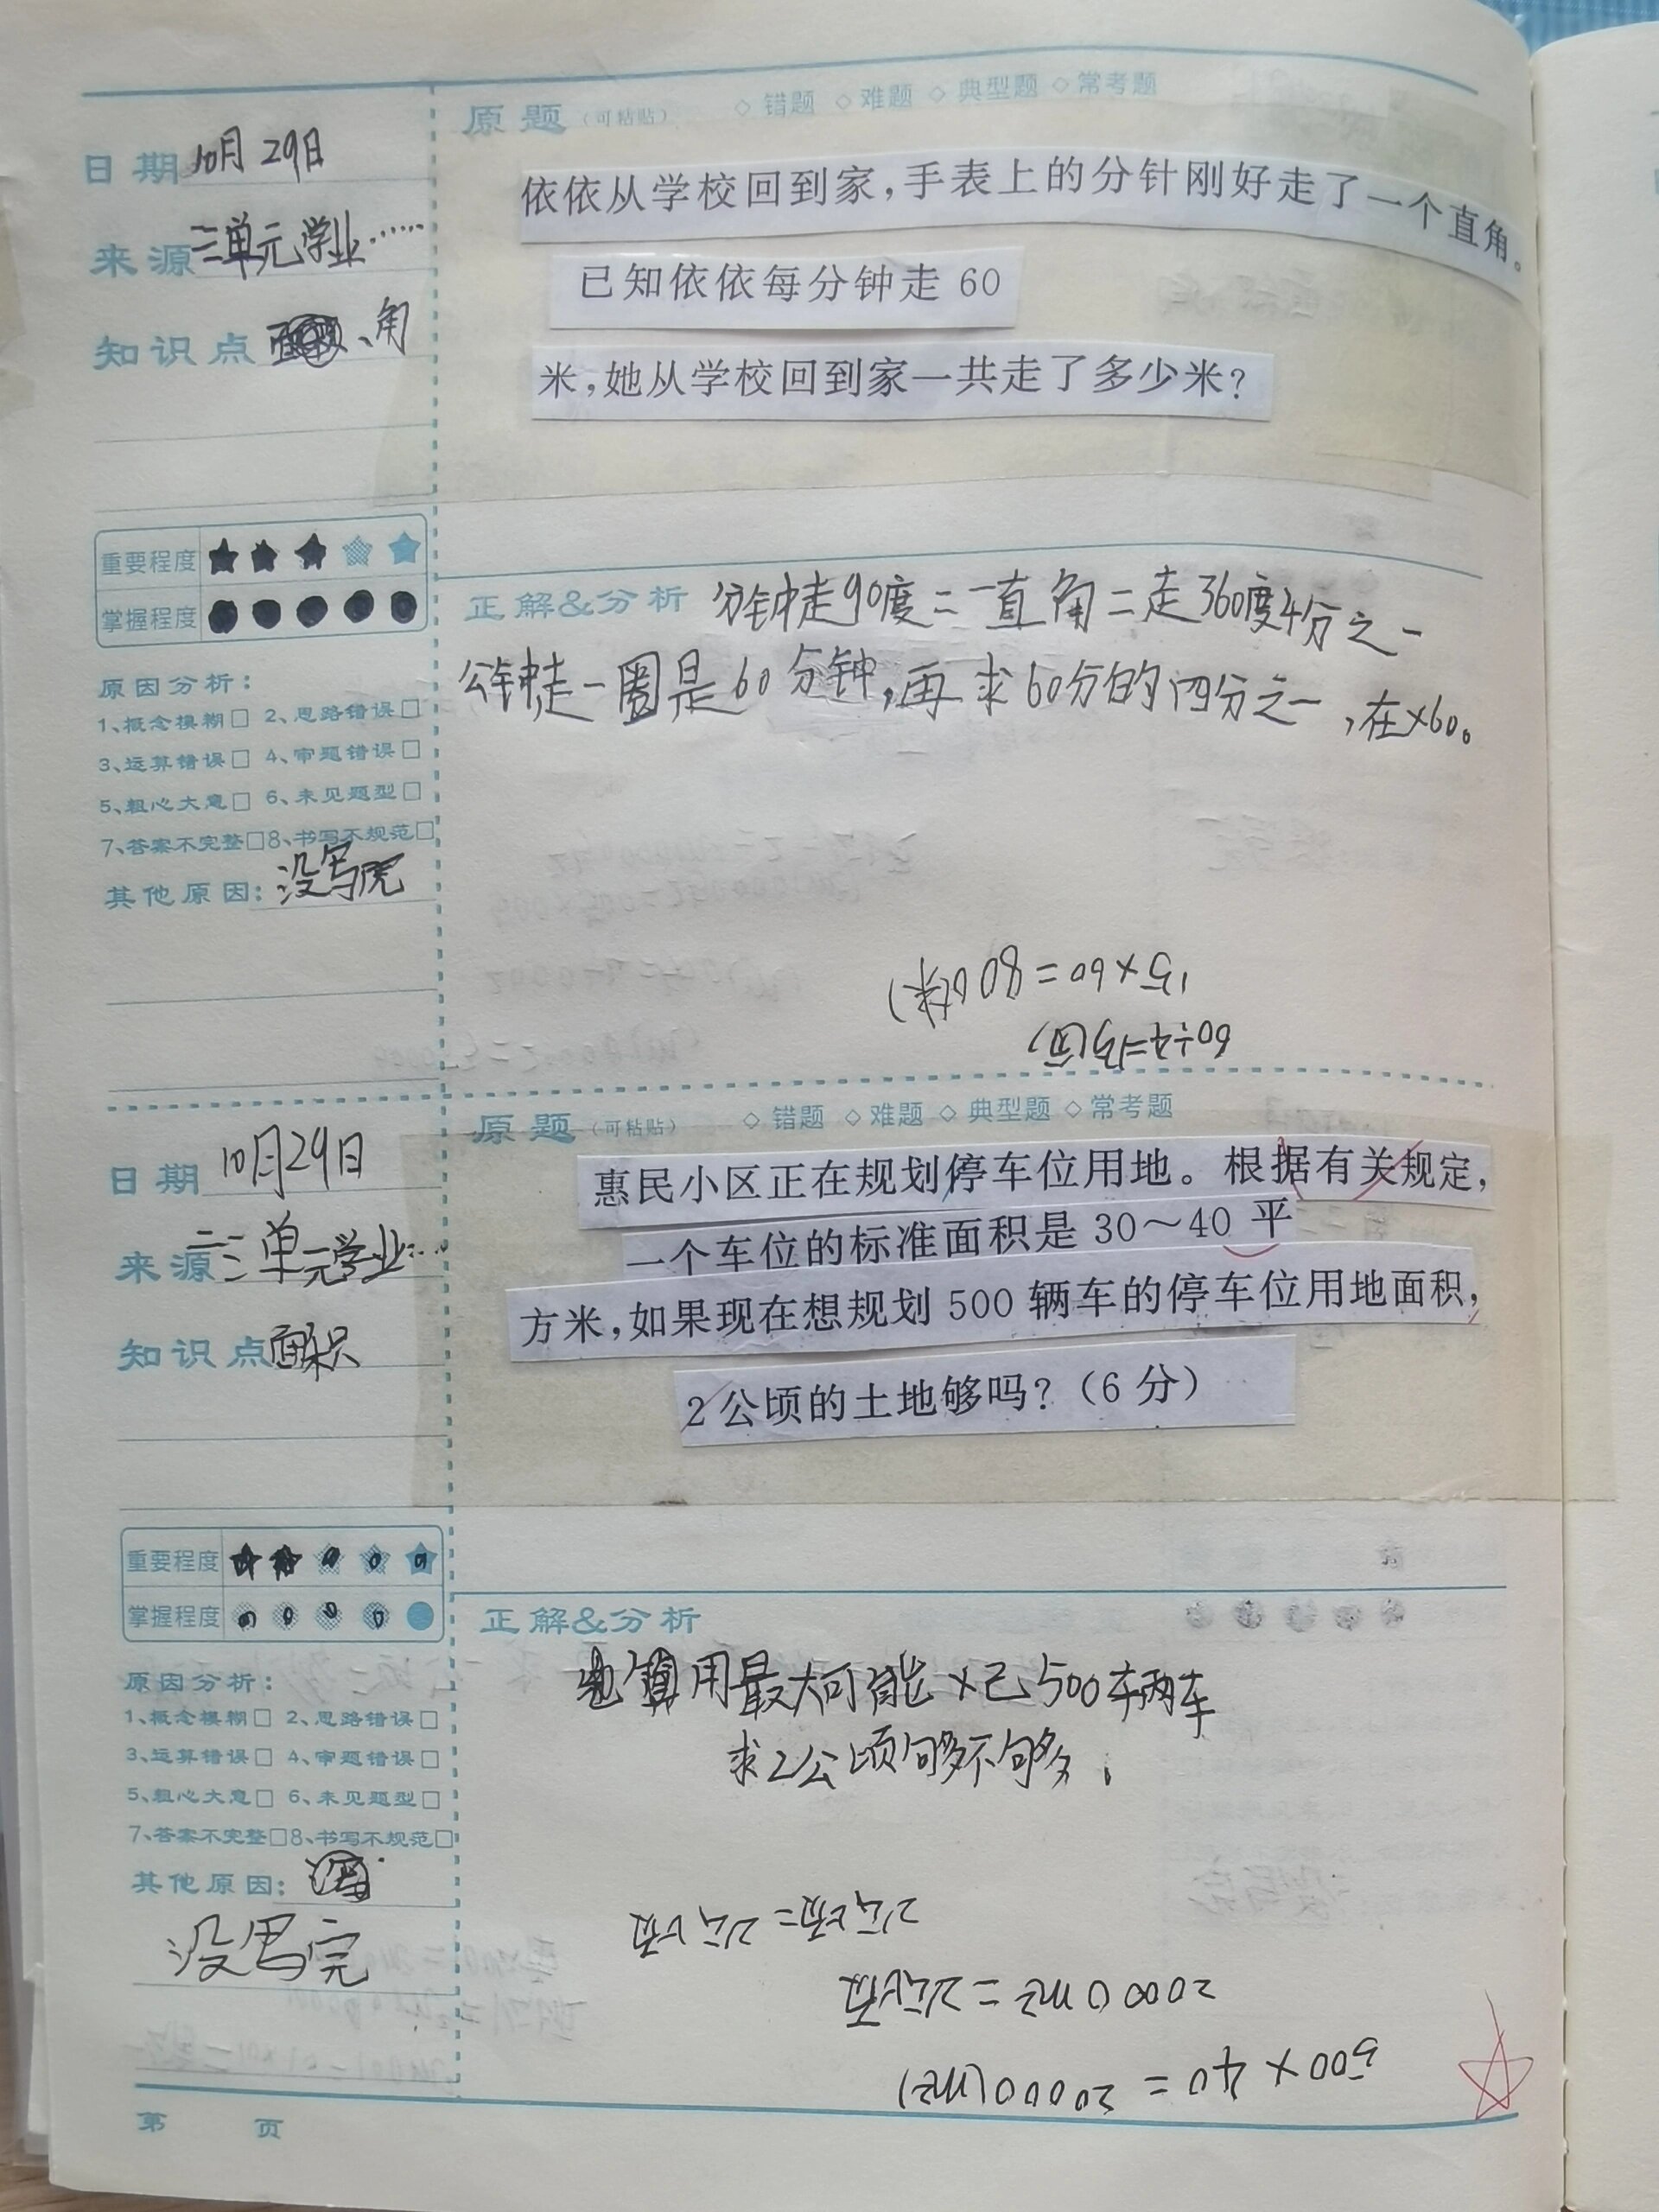 原题（可粘贴） ◇错题 ◇难题 ◇典型题 ◇常考题
日期 10月29日
来源 三单元学业……
知识点 、角
依依从学校回到家，手表上的分针刚好走了一个直角。
已知依依每分钟走 60
米，她从学校回到家一共走了多少米？
重要程度
掌握程度
原因分析：
1、概念模糊□ 2、思路错误□
3、运算错误□ 4、审题错误□
5、粗心大意□ 6、未见题型□
7、答案不完整□ 8、书写不规范□
其他原因：没写完
正解&分析 分钟走90度=一直角=走360度4分之一
分钟走一圈是60分钟,再求60分的四分之一,在×60。
60÷4=15(
15×60=800(米)
原题（可粘贴） ◇错题 ◇难题 ◇典型题 ◇常考题
日期 10月29日
来源 三单元学业…
知识点 面积
惠民小区正在规划停车位用地。根据有关规定，
一个车位的标准面积是 30～40 平
方米，如果现在想规划 500 辆车的停车位用地面积，
2 公顷的土地够吗？（6 分）
重要程度
掌握程度
原因分析：
1、概念模糊□ 2、思路错误□
3、运算错误□ 4、审题错误□
5、粗心大意□ 6、未见题型□
7、答案不完整□ 8、书写不规范□
其他原因：
没写完
正解&分析
用最大可能×已500车两车
求2公顷够不够。
500×40=20000(m2)
20000m2=2公顷
2公顷=2公顷
第 页